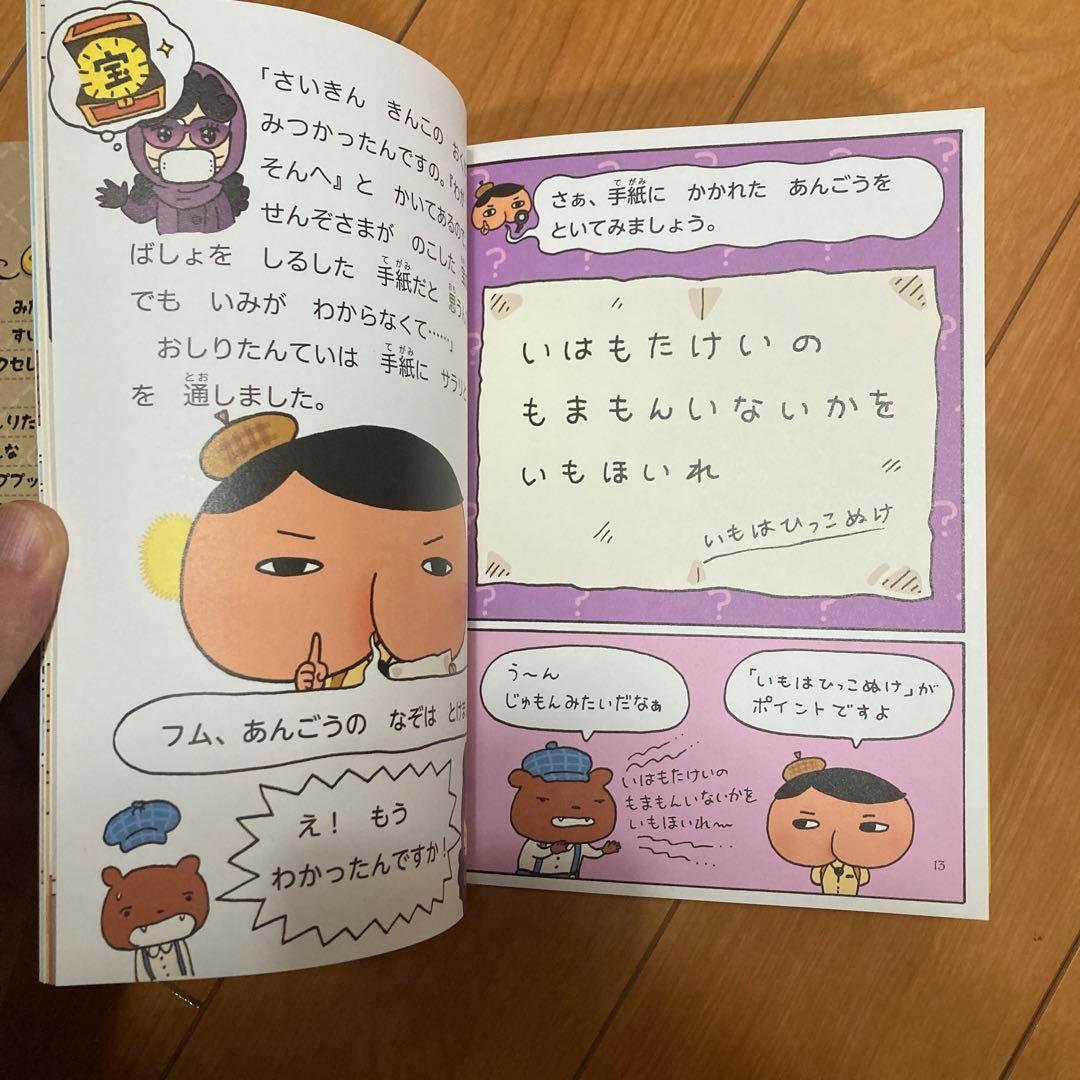 宝
「さいきん きんこの
みつかったんですの。『わが
そんへ』と かいてあるので
せんぞさまが のこした
ばしょを しるした 手紙だと 思う
でも いみが わからなくて……」
おしりたんていは 手紙に サラリと
を 通しました。
フム、あんごうの なぞは
え! もう
わかったんですか!
さぁ、手紙に かかれた あんごうを
といてみましょう。
いはもたけいの
もまもんいないかを
いもほいれ
いもはひっこぬけ
う〜ん
じゅもんみたいだなぁ
いはもたけいの
もまもんいないかを
いもほいれ〜
「いもはひっこぬけ」が
ポイントですよ
13